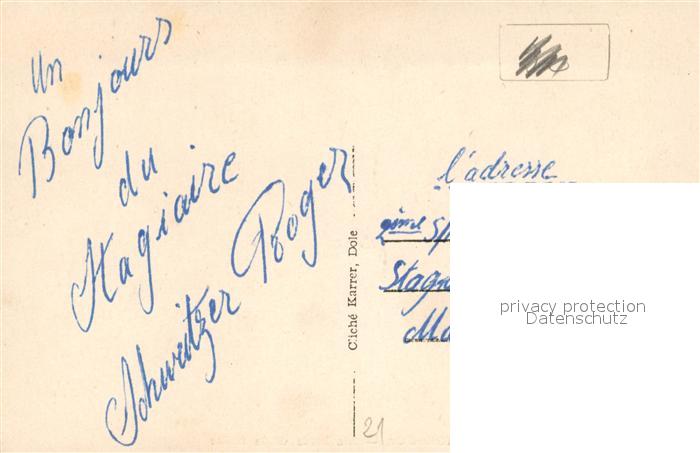 Un
Bonjours
du
Stagiaire
Schweitzer Roger
Cliché Karrer, Dole
l'adresse
2ème
Stagi
Ma
privacy protection
Datenschutz
21